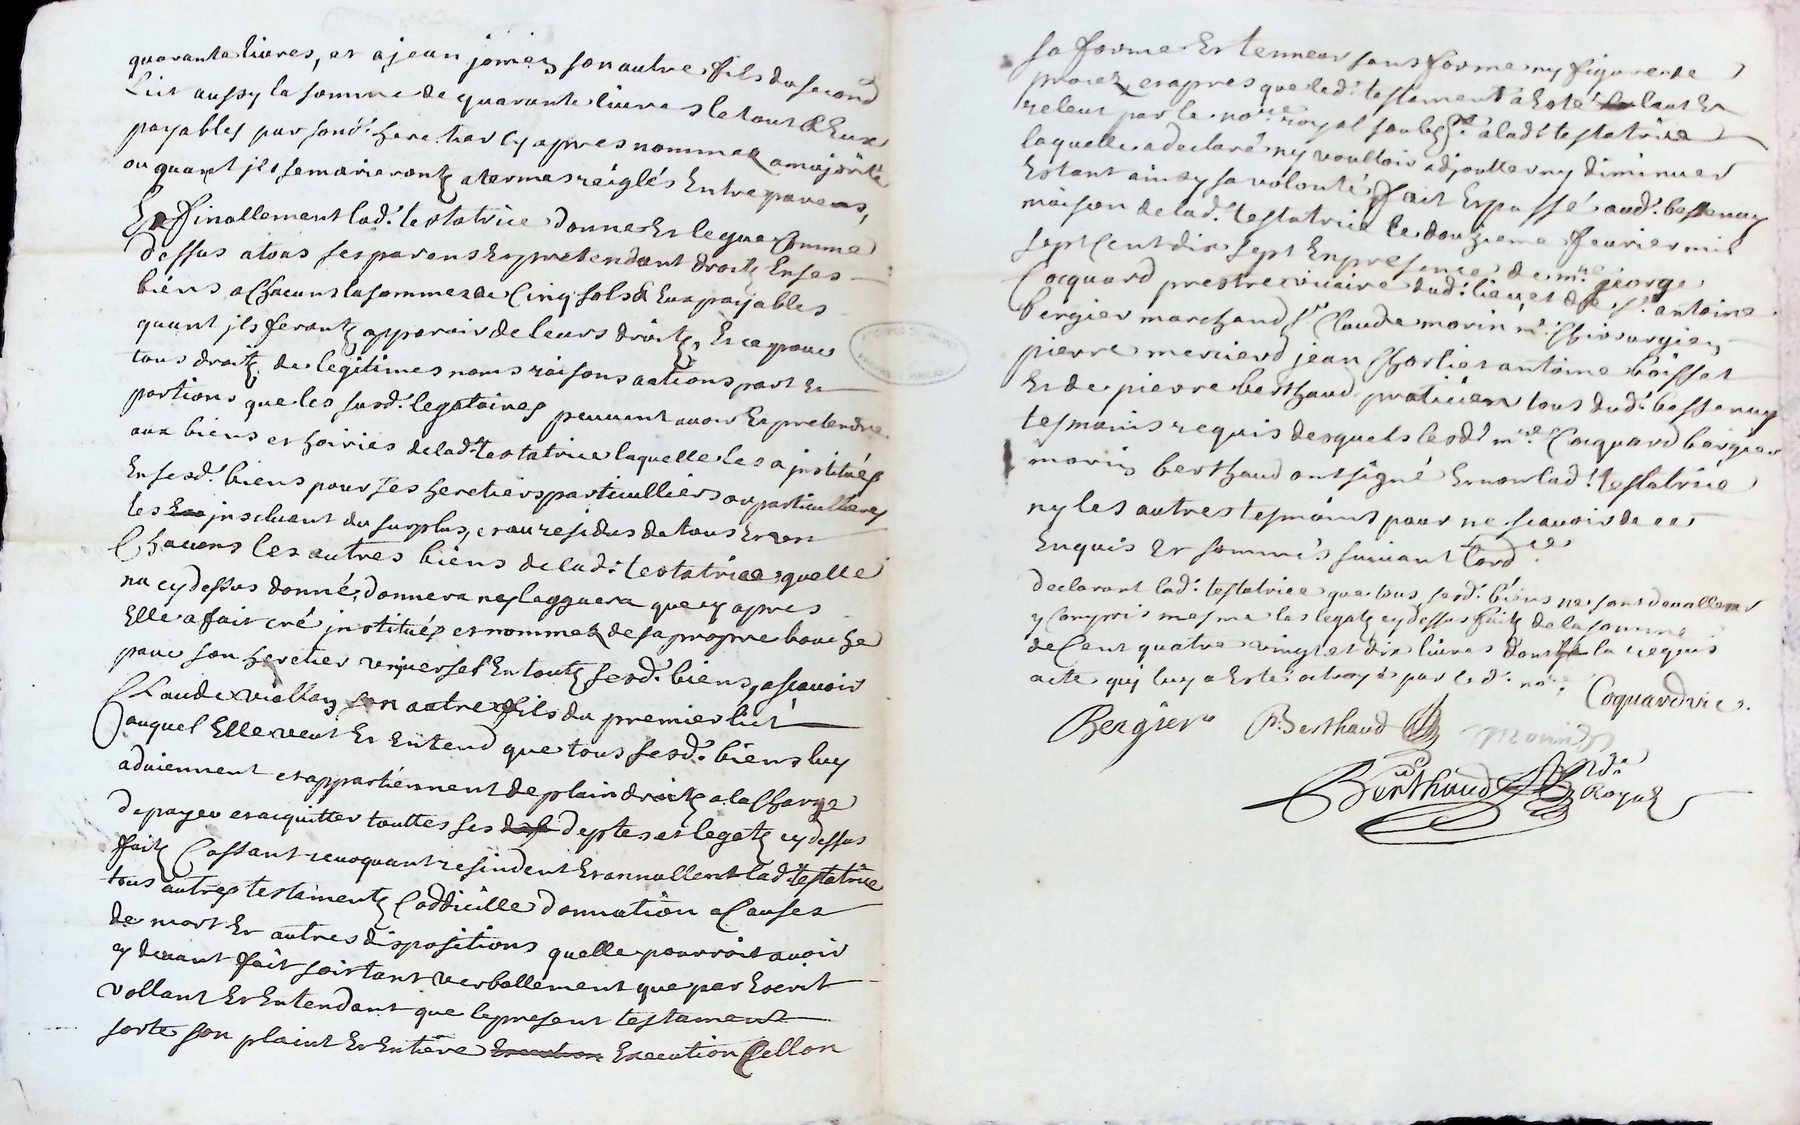 quarante livres, et a jean jomez son autre fils du second
Lict aussy la somme de quarante livres le tout a Eux
payables par sond. heretier cy apres nommez a majorité
ou quant jls semarieront a termes reiglés Entre parens,
Et finallement lad. testatrice donne Et legue Comme
dessus atous ses parens Et pretendant droitz En ses
biens a Chacuns la somme de Cinq sols a Eux payables
quant jls feront apparoir de leurs droitz, Et ce pour
tous droitz de legitimes noms raisons actions part Et
portions que les susd. legataires peuvent avoir Et pretendre
aux biens et hoiries de lad. testatrice laquelle les a jnstitués
En sesd. biens pour ses heretiers particulliers ou particullieres
les jnscluant du surplus, et au residus de tous Et un
Chacuns les autres biens de lad. testatrice, quelle
na cy dessus donné, donnera ny leguera que cy apres
Elle a fait créé jnstitués et nommez de sa propre bouche
pour son heretier vnjversel En toutz sesd. biens, ascavoir
Claude viallon son autre fils du premier lict
auquel Elle veut Et Entend que tous sesd. biens luy
adviennent et appartiennent de plain droitz a la Charge
de payer et acquitter touttes ses deptes et legatz cy dessus
faitz Cassant revoquant resindent Et annullent lad. testatrice
tous autres testamentz Coddicille donnation a Causes
de mort Et autres dispositions quelle pourroit avoir
cy devant fait soit tant verballement que par Escrit
vollant Et Entendant que le present testament
sorte son plaint Et Entiere Execution sellon
sa forme Et tenneur sans forme ny figure de
procez, et apres que led. testament a Esté leut Et
releut par le nore royal soubsné a lad. testatrice
laquelle a declaré ny voulloir adjoutter ny diminuer
Estant ainsy sa volonté, fait Et passé aud. bessenay
maison de lad. testatrice le douzieme febvrier mil
sept Cent dix sept En presence de mre george
Cocquard prestre vicaire dud. lieu, et de sr. antoine
bergier marchand sr Claude morin me Chirurgien
pierre mercier jean Charlier antoine boisset
Et de pierre berthaud praticien tous dud. bessenay
tesmoins requis desquels lesd. mre Cocquard bergier
morin berthaud ont signé Et non lad. testatrice
ny les autres tesmoins pour ne scavoir de ce
Enquis Et sommés suivant lordce
declarant lad. testatrice que tous sesd. biens ne sont de valleur
y Compris mesme les legatz cy dessus faitz de la somme
de Cent quatre vingt et dix livres dont la requis
acte qui luy a Esté octroyé par led. nore
Coquard vic.
Bergier P. Berthaud Morin
Berthaud
Royal